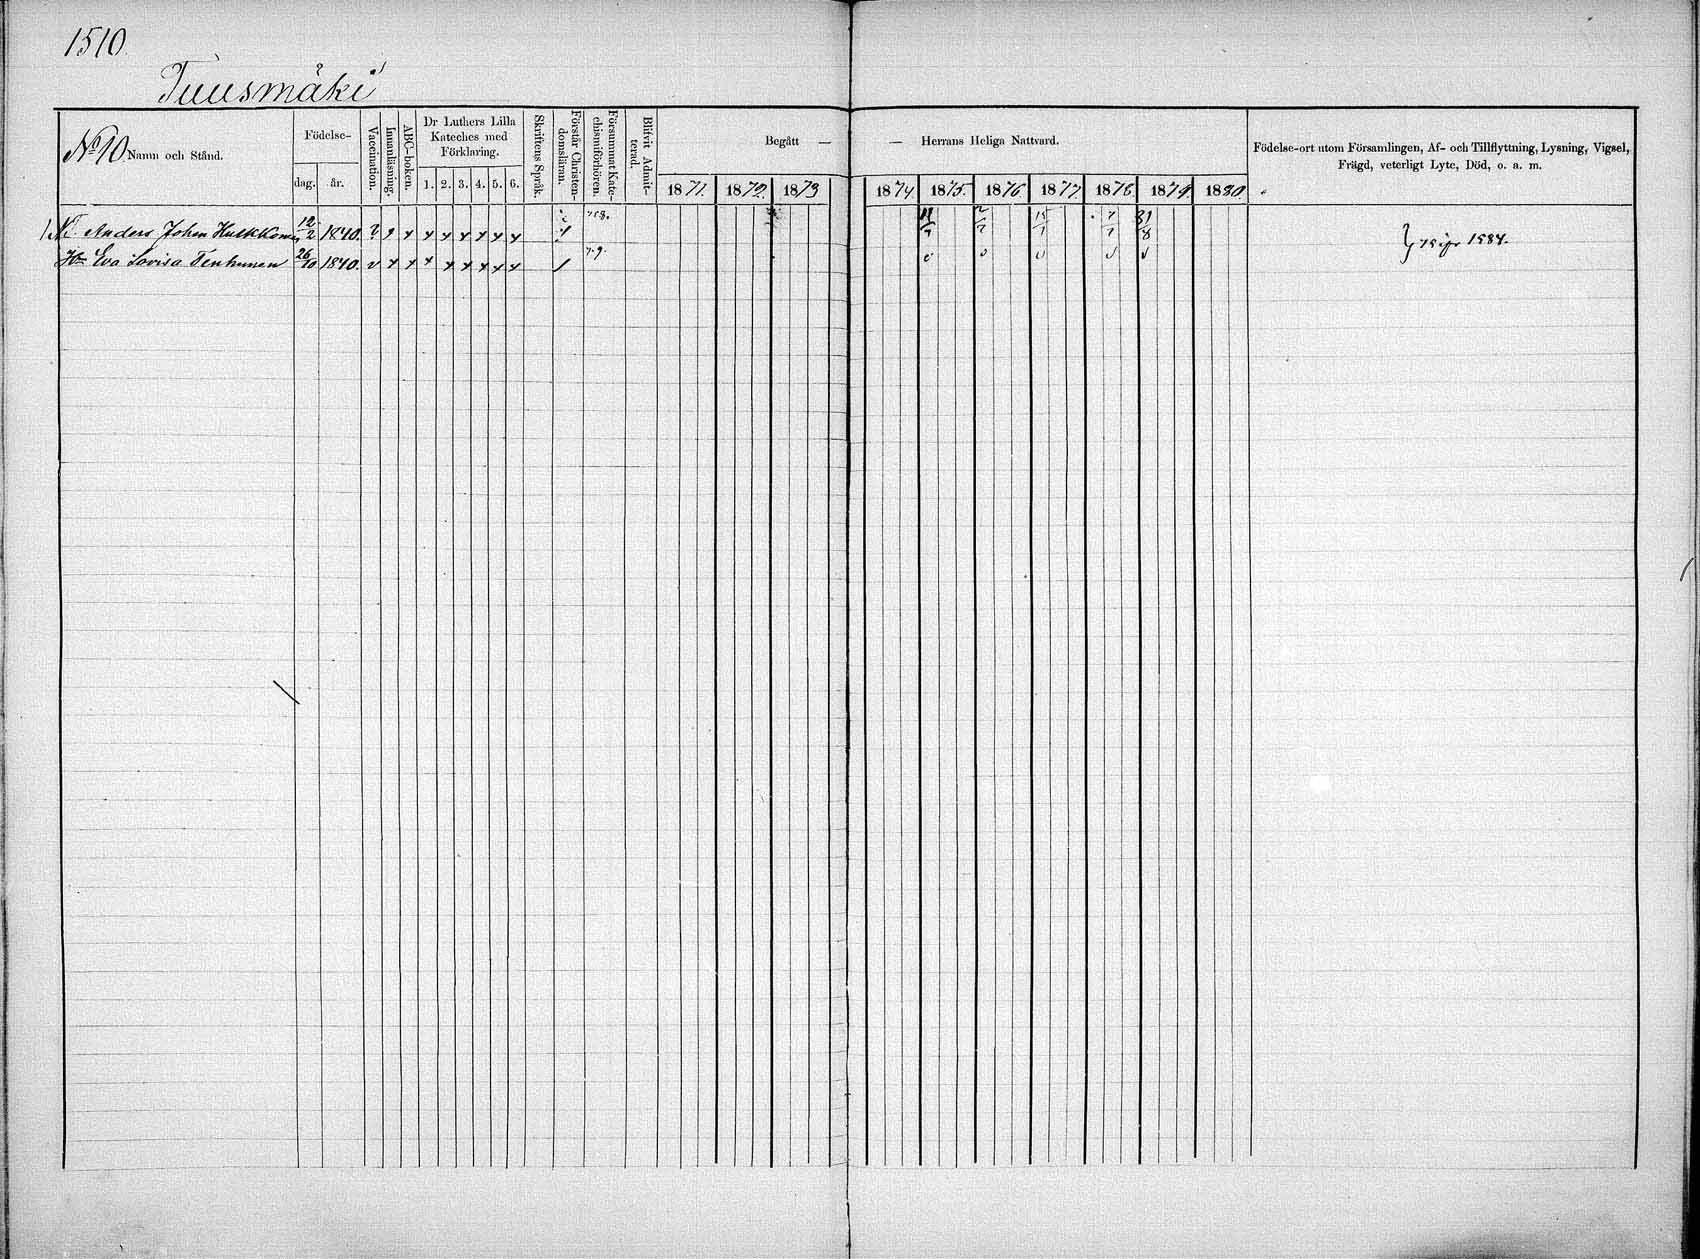 1510.
Tuusmäki
No 10 Namn och Stånd.
Födelse-
dag.
år.
Vaccination.
Innanläsning.
ABC-boken.
Dr Luthers Lilla
Kateches med
Förklaring.
1. 2. 3. 4. 5. 6.
Skriftens Språk.
Förstår Christen-
domsläran.
Försummat Kate-
chismiförhören.
Blifvit Admit-
terad.
Begått —
— Herrans Heliga Nattvard.
1871. 1872. 1873 1874 1875 1876. 1877. 1878 1879. 1880.
Födelse-ort utom Församlingen, Af- och Tillflyttning, Lysning, Vigsel,
Frägd, veterligt Lyte, Död, o. a. m.
Anders Johan Hulkkonen 12/2 1840. x x x x x x x x 11/7 2/7 15/7 7/7 31/8
Hu Eva Lovisa Tenhunen 26/10 1840. v x x x x x x x x 79.
75 ifr 1584.